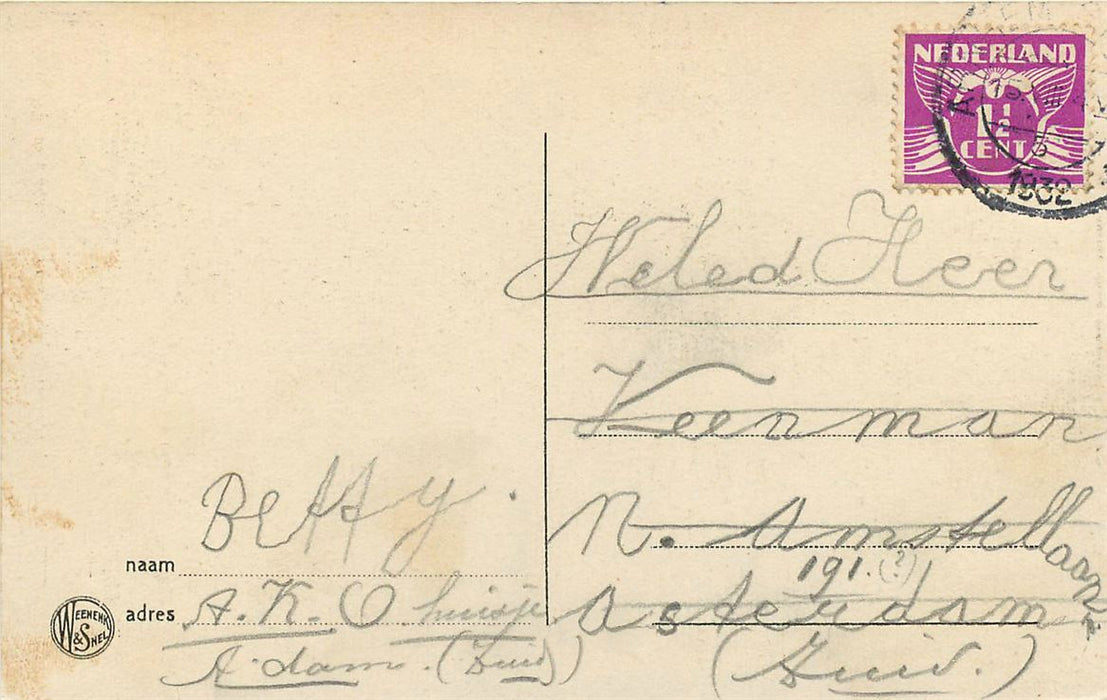 NEDERLAND
1½
CENT
1932
Weled Heer
Veenman
N. Amstellaan
191. (?)
Asterdam
(Zuid.)
Betty.
naam
adres A.K.O huisje
A'dam. (Zuid)
WEENENK
& SNEL